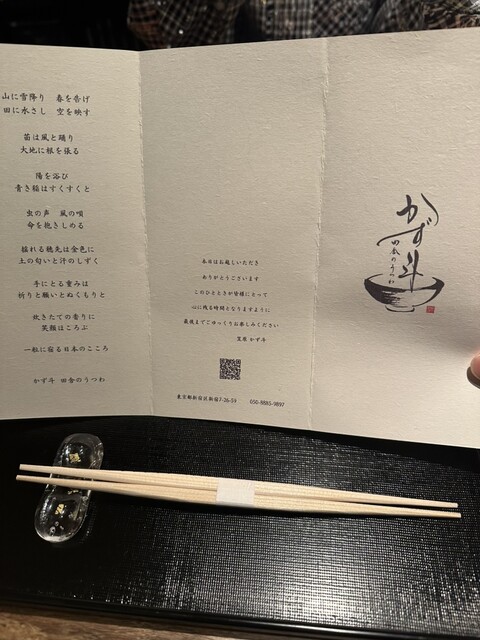 山に雪降り　春を告げ
田に水さし　空を映す
苗は風と踊り
大地に根を張る
陽を浴び
青き稲はすくすくと
虫の声　風の唄
命を抱きしめる
揺れる穂先は金色に
土の匂いと汗のしずく
手にとる重みは
祈りと願いとぬくもりと
炊きたての香りに
笑顔ほころぶ
一粒に宿る日本のこころ
かず斗　田舎のうつわ
本日はお越しいただき
ありがとうございます
このひとときが皆様にとって
心に残る時間となりますように
最後までごゆっくりお楽しみください
かず斗
東京都新宿区新宿7-26-59　050-8885-9897
かず斗
田舎のうつわ